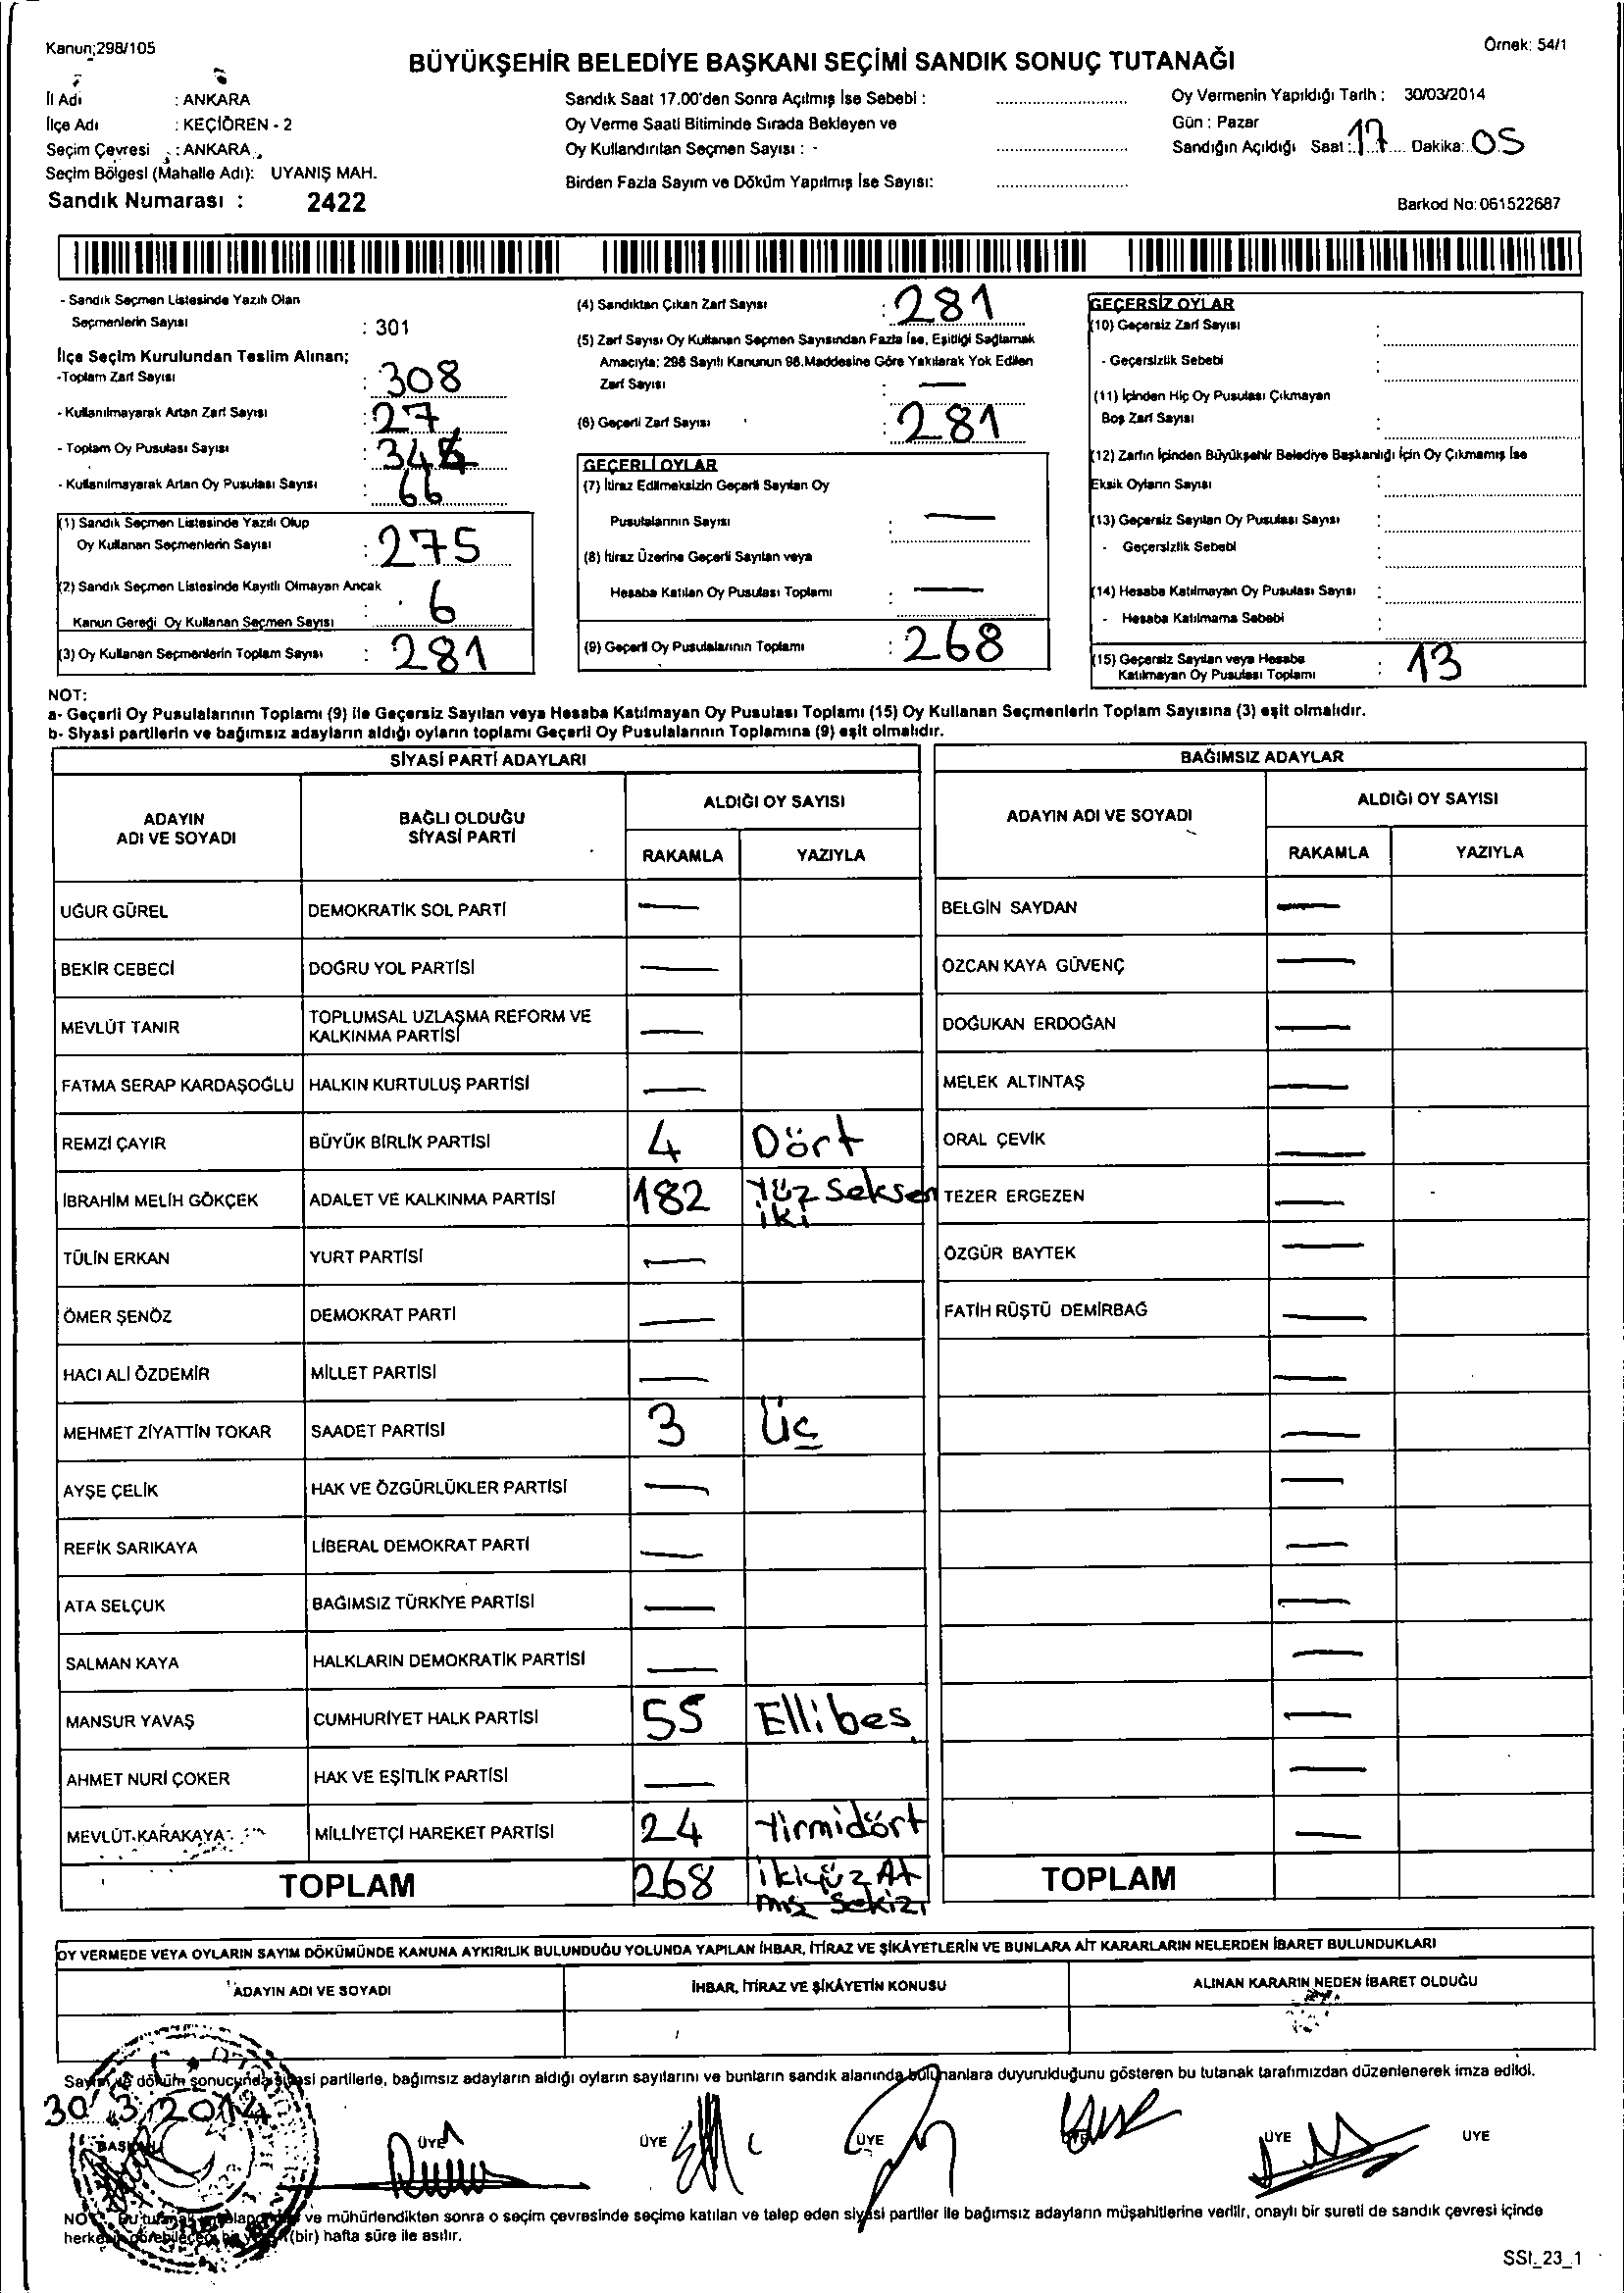 Kanun;298/105
Örnek: 54/1
BÜYÜKŞEHİR BELEDİYE BAŞKANI SEÇİMİ SANDIK SONUÇ TUTANAĞI
İl Adı : ANKARA
İlçe Adı : KEÇİÖREN - 2
Seçim Çevresi : ANKARA
Seçim Bölgesi (Mahalle Adı): UYANIŞ MAH.
Sandık Numarası : 2422
Sandık Saat 17.00'den Sonra Açılmış İse Sebebi :
Oy Verme Saati Bitiminde Sırada Bekleyen ve
Oy Kullandırılan Seçmen Sayısı : -
Birden Fazla Sayım ve Döküm Yapılmış İse Sayısı:
Oy Vermenin Yapıldığı Tarih : 30/03/2014
Gün : Pazar
Sandığın Açıldığı Saat : 17 Dakika: 05
Barkod No:061522687
- Sandık Seçmen Listesinde Yazılı Olan
Seçmenlerin Sayısı : 301
İlçe Seçim Kurulundan Teslim Alınan;
-Toplam Zarf Sayısı : 308
- Kullanılmayarak Artan Zarf Sayısı : 27
- Toplam Oy Pusulası Sayısı :
- Kullanılmayarak Artan Oy Pusulası Sayısı : 66
(1) Sandık Seçmen Listesinde Yazılı Olup
Oy Kullanan Seçmenlerin Sayısı : 275
(2) Sandık Seçmen Listesinde Kayıtlı Olmayan Ancak
Kanun Gereği Oy Kullanan Seçmen Sayısı : 6
(3) Oy Kullanan Seçmenlerin Toplam Sayısı : 281
(4) Sandıktan Çıkan Zarf Sayısı : 281
(5) Zarf Sayısı Oy Kullanan Seçmen Sayısından Fazla İse, Eşitliği Sağlamak
Amacıyla; 298 Sayılı Kanunun 98.Maddesine Göre Yakılarak Yok Edilen
Zarf Sayısı : —
(6) Geçerli Zarf Sayısı : 281
GEÇERLİ OYLAR
(7) İtiraz Edilmeksizin Geçerli Sayılan Oy
Pusulalarının Sayısı : —
(8) İtiraz Üzerine Geçerli Sayılan veya
Hesaba Katılan Oy Pusulası Toplamı : —
(9) Geçerli Oy Pusulalarının Toplamı : 268
GEÇERSİZ OYLAR
(10) Geçersiz Zarf Sayısı :
- Geçersizlik Sebebi :
(11) İçinden Hiç Oy Pusulası Çıkmayan
Boş Zarf Sayısı :
(12) Zarfın İçinden Büyükşehir Belediye Başkanlığı İçin Oy Çıkmamış İse
Eksik Oyların Sayısı :
(13) Geçersiz Sayılan Oy Pusulası Sayısı :
- Geçersizlik Sebebi :
(14) Hesaba Katılmayan Oy Pusulası Sayısı :
- Hesaba Katılmama Sebebi :
(15) Geçersiz Sayılan veya Hesaba
Katılmayan Oy Pusulası Toplamı : 13
NOT:
a- Geçerli Oy Pusulalarının Toplamı (9) ile Geçersiz Sayılan veya Hesaba Katılmayan Oy Pusulası Toplamı (15) Oy Kullanan Seçmenlerin Toplam Sayısına (3) eşit olmalıdır.
b- Siyasi partilerin ve bağımsız adayların aldığı oyların toplamı Geçerli Oy Pusulalarının Toplamına (9) eşit olmalıdır.
SİYASİ PARTİ ADAYLARI
ADAYIN ADI VE SOYADI
BAĞLI OLDUĞU SİYASİ PARTİ
ALDIĞI OY SAYISI
RAKAMLA YAZIYLA
UĞUR GÜREL DEMOKRATİK SOL PARTİ —
BEKİR CEBECİ DOĞRU YOL PARTİSİ —
MEVLÜT TANIR TOPLUMSAL UZLAŞMA REFORM VE KALKINMA PARTİSİ —
FATMA SERAP KARDAŞOĞLU HALKIN KURTULUŞ PARTİSİ —
REMZİ ÇAYIR BÜYÜK BİRLİK PARTİSİ 4 Dört
İBRAHİM MELİH GÖKÇEK ADALET VE KALKINMA PARTİSİ 182 Yüz Seksen iki
TÜLİN ERKAN YURT PARTİSİ —
ÖMER ŞENÖZ DEMOKRAT PARTİ —
HACI ALİ ÖZDEMİR MİLLET PARTİSİ —
MEHMET ZİYATTİN TOKAR SAADET PARTİSİ 3 Üç
AYŞE ÇELİK HAK VE ÖZGÜRLÜKLER PARTİSİ —
REFİK SARIKAYA LİBERAL DEMOKRAT PARTİ —
ATA SELÇUK BAĞIMSIZ TÜRKİYE PARTİSİ —
SALMAN KAYA HALKLARIN DEMOKRATİK PARTİSİ —
MANSUR YAVAŞ CUMHURİYET HALK PARTİSİ 55 Ellibeş
AHMET NURİ ÇOKER HAK VE EŞİTLİK PARTİSİ —
MEVLÜT KARAKAYA MİLLİYETÇİ HAREKET PARTİSİ 24 Yirmidört
TOPLAM 268 ikiyüz At
mış Sekiz
BAĞIMSIZ ADAYLAR
ADAYIN ADI VE SOYADI
ALDIĞI OY SAYISI
RAKAMLA YAZIYLA
BELGİN SAYDAN —
OZCAN KAYA GÜVENÇ —
DOĞUKAN ERDOĞAN —
MELEK ALTINTAŞ —
ORAL ÇEVİK —
TEZER ERGEZEN —
ÖZGÜR BAYTEK —
FATİH RÜŞTÜ DEMİRBAĞ —
—
—
—
—
—
—
—
—
—
TOPLAM
OY VERMEDE VEYA OYLARIN SAYIM DÖKÜMÜNDE KANUNA AYKIRILIK BULUNDUĞU YOLUNDA YAPILAN İHBAR, İTİRAZ VE ŞİKÂYETLERİN VE BUNLARA AİT KARARLARIN NELERDEN İBARET BULUNDUKLARI
ADAYIN ADI VE SOYADI İHBAR, İTİRAZ VE ŞİKÂYETİN KONUSU ALINAN KARARIN NEDEN İBARET OLDUĞU
Sayım ve döküm sonucunda siyasi partilerle, bağımsız adayların aldığı oyların sayılarını ve bunların sandık alanında bulunanlara duyurulduğunu gösteren bu tutanak tarafımızdan düzenlenerek imza edildi.
30.3.2014
BAŞKAN ÜYE ÜYE ÜYE ÜYE ÜYE ÜYE
NOT: Bu tutanak ve mühürlendikten sonra o seçim çevresinde seçime katılan ve talep eden siyasi partiler ile bağımsız adayların müşahitlerine verilir, onaylı bir sureti de sandık çevresi içinde
herkesin görebileceği bir yere (bir) hafta süre ile asılır.
SSI_23_1